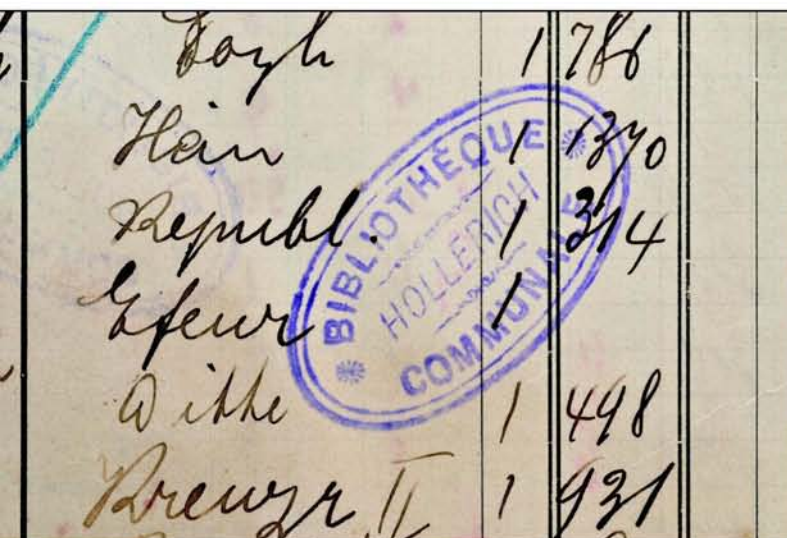 1 786
Hein 1 1370
Republ. 1 314
Efeur 1
Witte 1 498
Kreuzr II 1 931
BIBLIOTHÈQUE
HOLLERICH
COMMUNALE